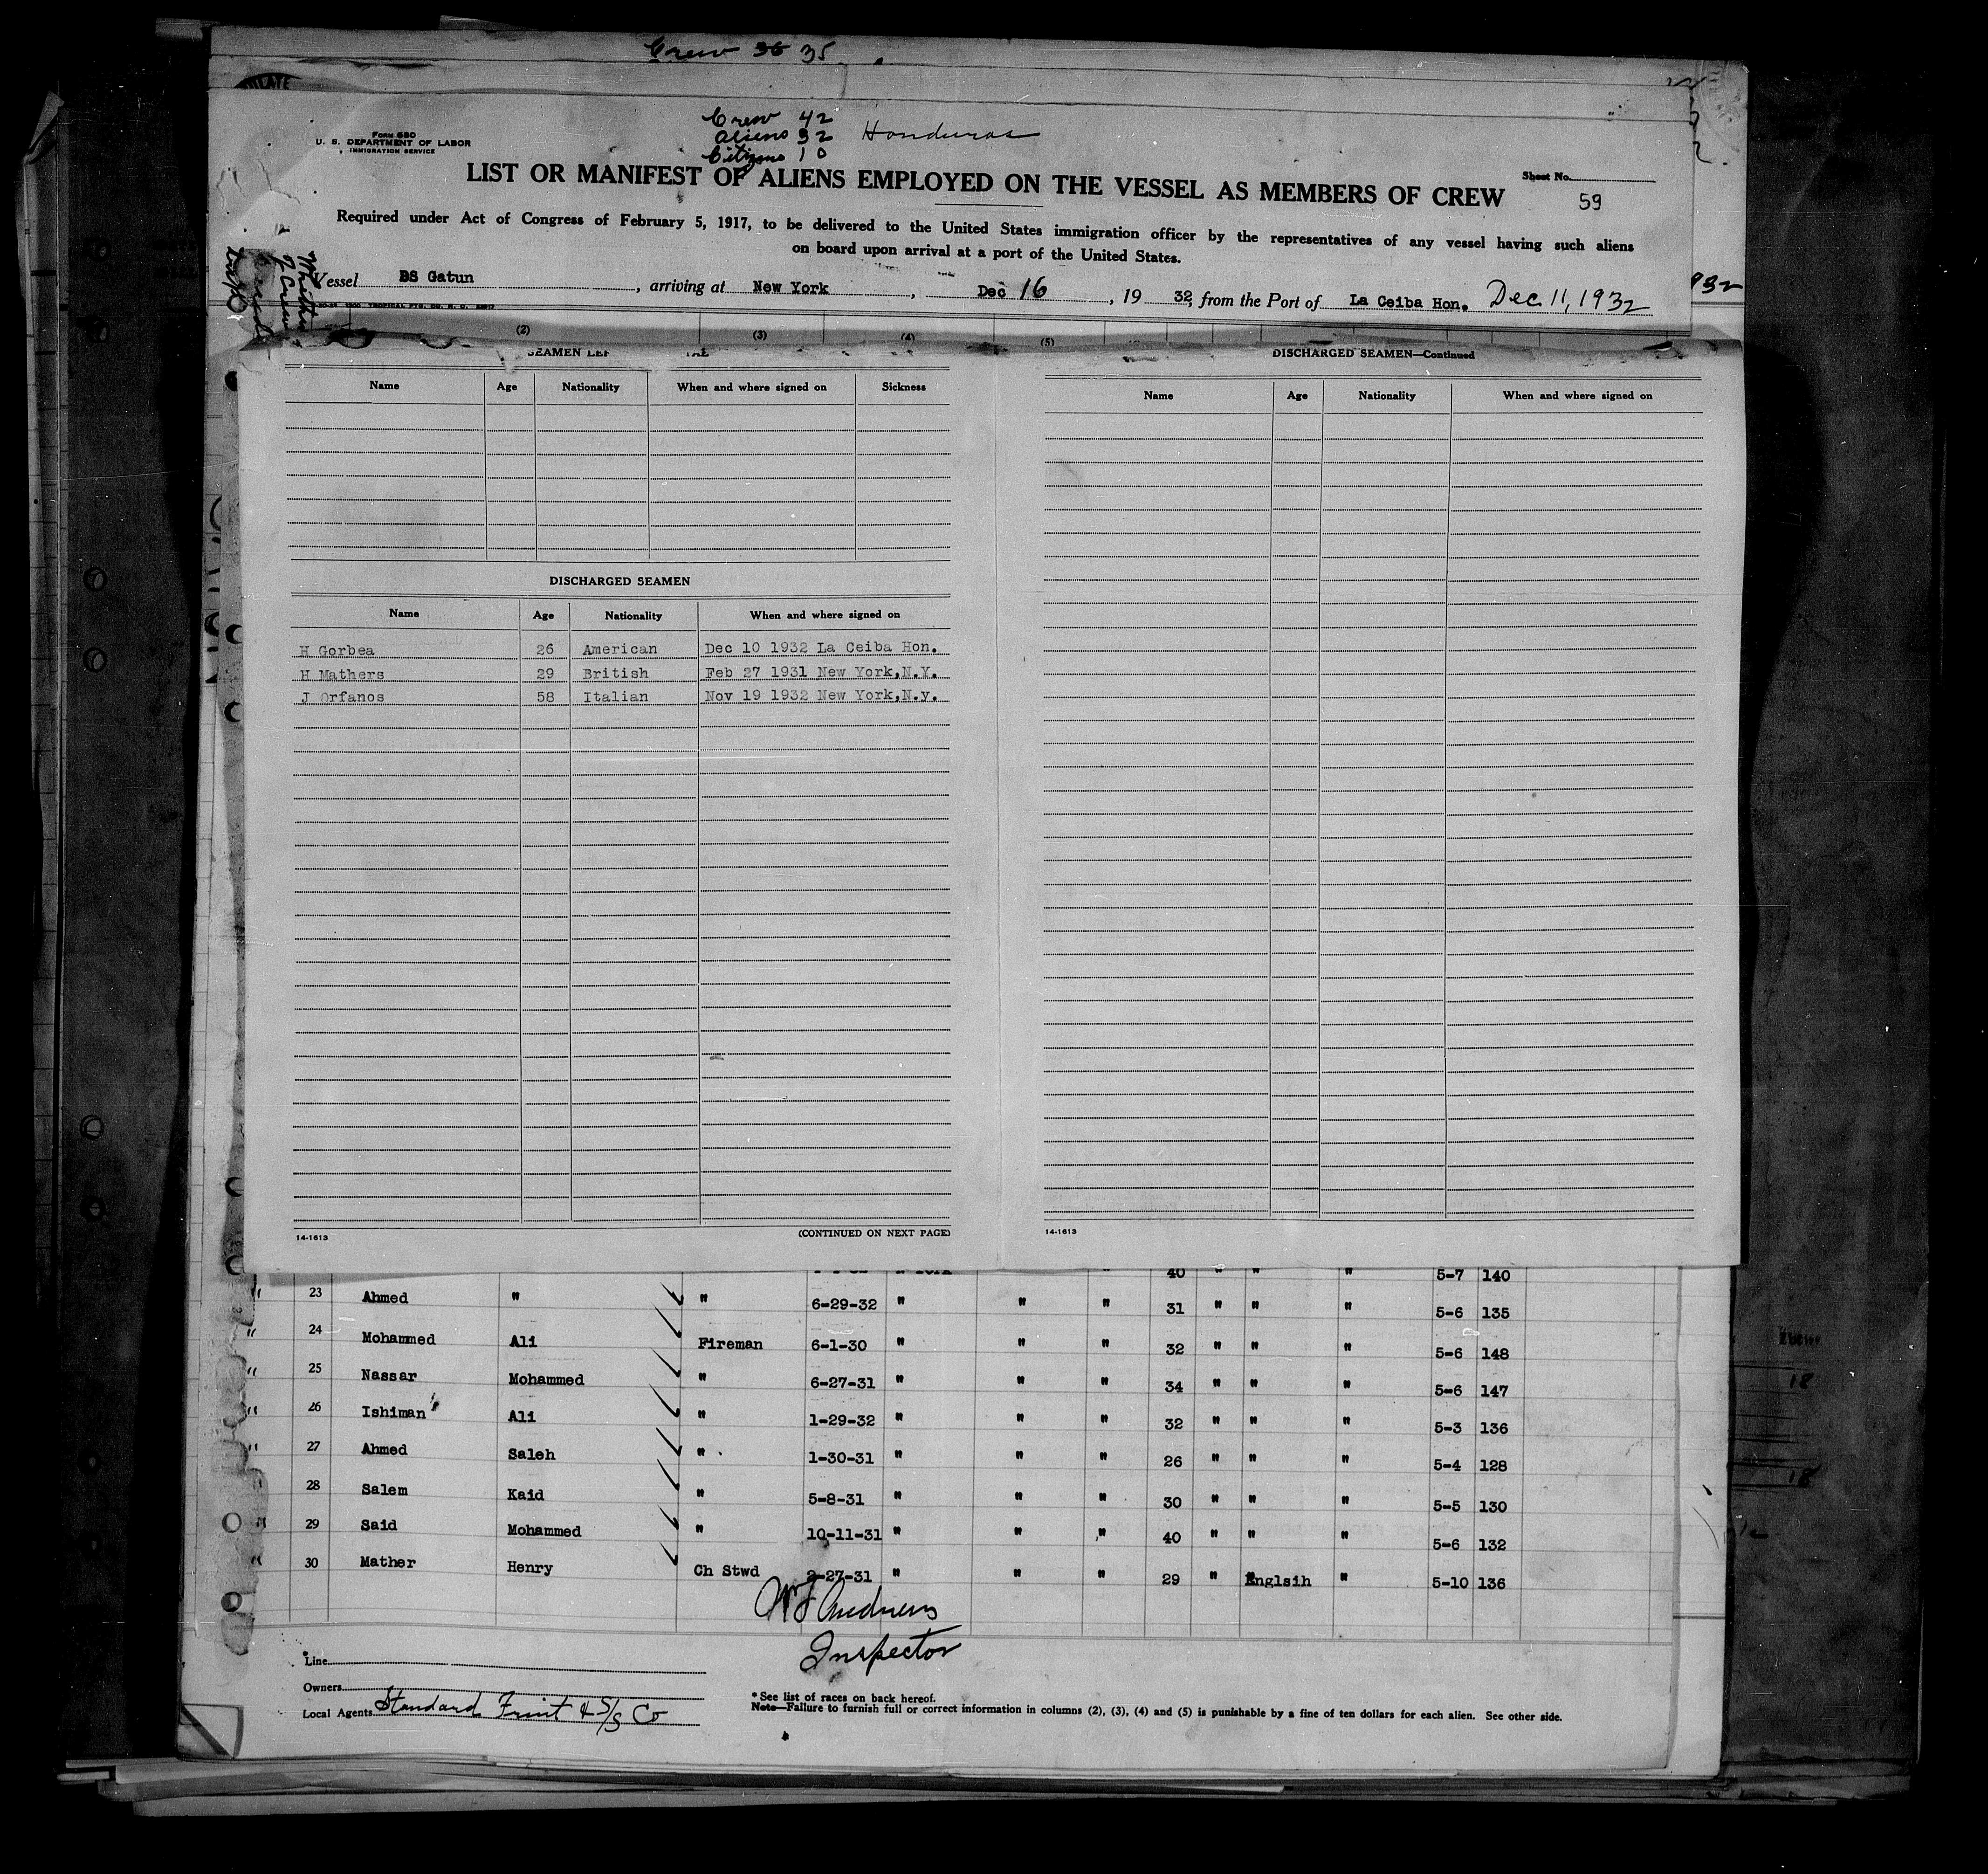 Crew 36 35
Crew 42
Aliens 32 Honduras
Citizens 10
Form 680
U. S. DEPARTMENT OF LABOR
IMMIGRATION SERVICE
LIST OR MANIFEST OF ALIENS EMPLOYED ON THE VESSEL AS MEMBERS OF CREW
Sheet No.
59
Required under Act of Congress of February 5, 1917, to be delivered to the United States immigration officer by the representatives of any vessel having such aliens
on board upon arrival at a port of the United States.
Vessel SS Gatun, arriving at New York, Dec 16, 1932, from the Port of La Ceiba Hon. Dec 11, 1932
932
(2) (3) (4) (5)
SEAMEN LEF
Name Age Nationality When and where signed on Sickness
DISCHARGED SEAMEN
Name Age Nationality When and where signed on
H Gorbea 26 American Dec 10 1932 La Ceiba Hon.
H Mathers 29 British Feb 27 1931 New York,N.Y.
J Orfanos 58 Italian Nov 19 1932 New York,N.y.
14-1613 (CONTINUED ON NEXT PAGE)
DISCHARGED SEAMEN—Continued
Name Age Nationality When and where signed on
14-1613
40 " " " 5-7 140
" 23 Ahmed " " 6-29-32 " " " 31 " " " 5-6 135
" 24 Mohammed Ali Fireman 6-1-30 " " " 32 " " " 5-6 148
" 25 Nassar Mohammed " 6-27-31 " " " 34 " " " 5-6 147
" 26 Ishiman Ali " 1-29-32 " " " 32 " " " 5-3 136
" 27 Ahmed Saleh " 1-30-31 " " " 26 " " " 5-4 128
" 28 Salem Kaid " 5-8-31 " " " 30 " " " 5-5 130
" 29 Said Mohammed " 10-11-31 " " " 40 " " " 5-6 132
" 30 Mather Henry Ch Stwd 2-27-31 " " " 29 " Englsih " 5-10 136
Andrews
Inspector
*Line
Owners
Local Agents Standard Fruit & S/S Co
* See list of races on back hereof.
Note—Failure to furnish full or correct information in columns (2), (3), (4) and (5) is punishable by a fine of ten dollars for each alien. See other side.
18
18